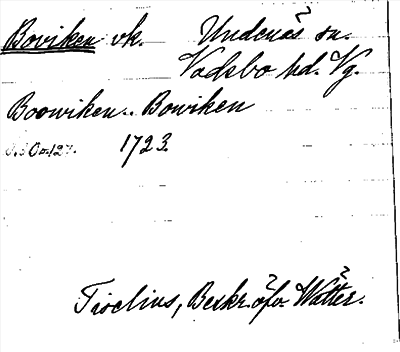 Boviken vk. Undenäs sn.
Vadsbo hd. Vg.
Boowiken.. Bowiken
1723.
Tiselius, Beskr. öfv. Wätter.